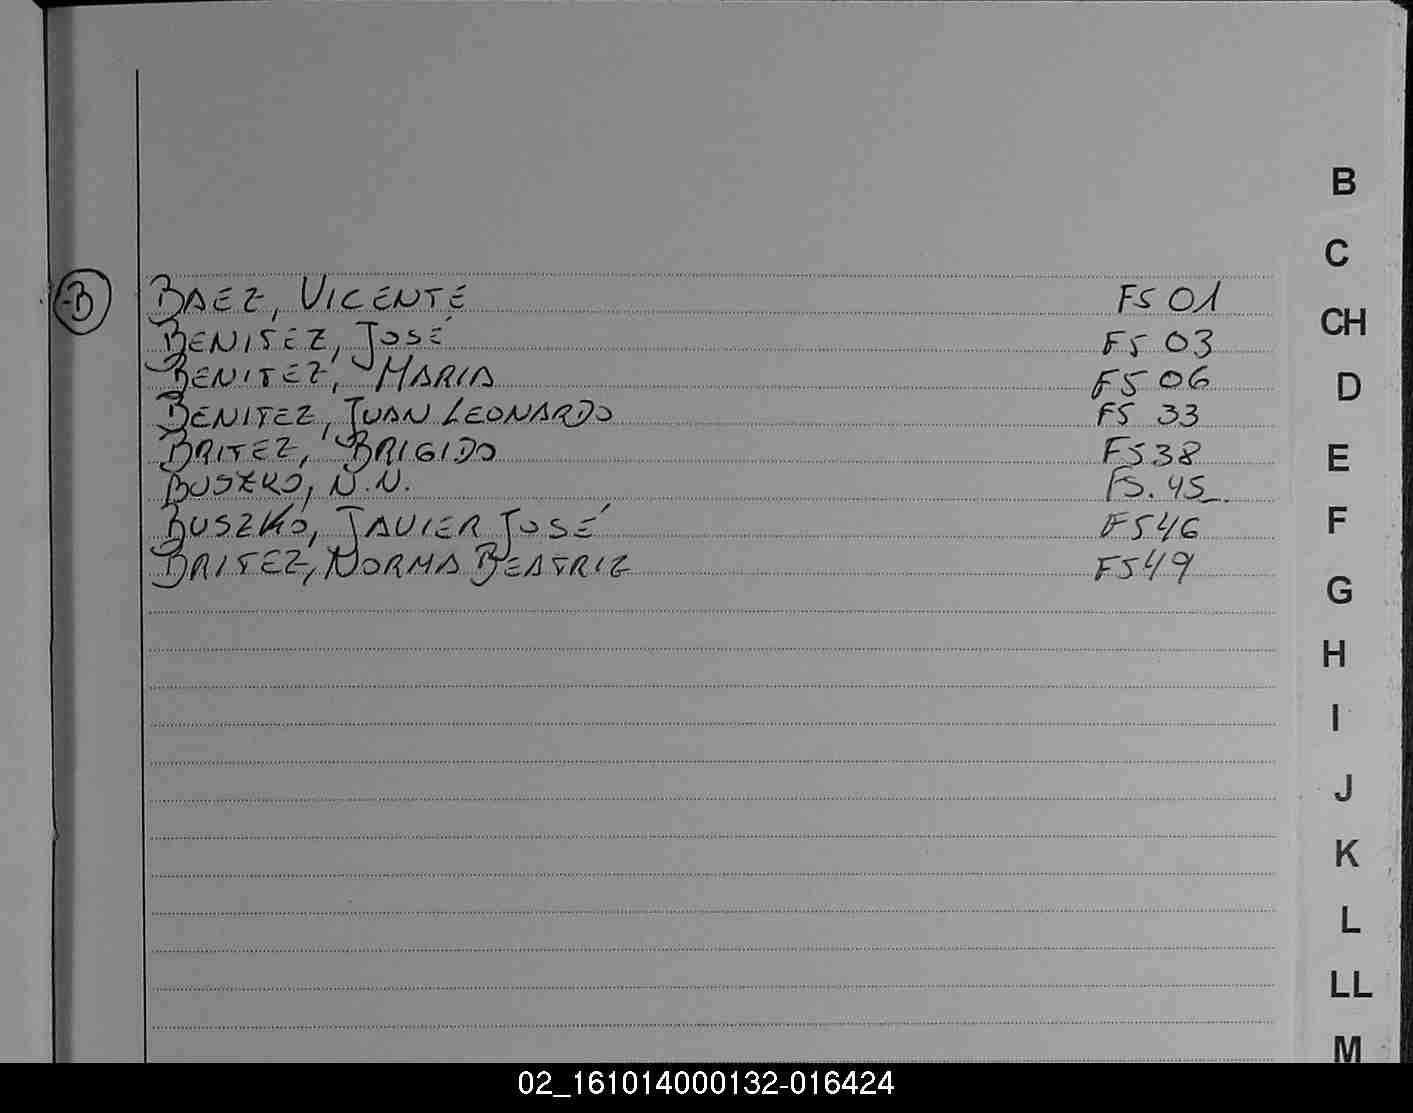 B
C
CH
D
E
F
G
H
I
J
K
L
LL
M
B
BAEZ, VICENTE FS 01
BENITEZ, JOSÉ FS 03
BENITEZ, MARIA FS 06
BENITEZ, JUAN LEONARDO FS 33
BRITEZ, BRIGIDO FS 38
BUSZKO, N.N. FS. 45
BUSZKO, JAVIER JOSÉ FS 46
BRITEZ, NORMA BEATRIZ FS 49
02_161014000132-016424